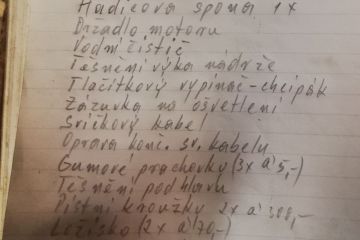 Hadicová spona 1x
Držadlo motoru
Vodní čistič
Těsnění víka nádrže
Tlačítkový vypínač-chcipák
Zásuvka na osvětlení
Svíčkový kabel
Oprava konc. sv. kabelu
Gumové prachovky (3x á 5,-)
Těsnění pod hlavu
Pístní kroužky 2x á 300,-
Ložisko (2x á 70,-)